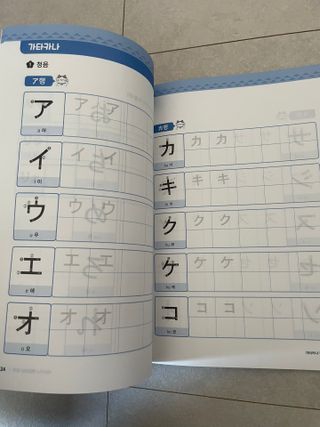 가타카나
청음
ア행
ア ア ア
a 아
イ イ イ
i 이
ウ ウ ウ
u 우
エ エ エ
e 에
オ オ オ
o 오
カ행
カ カ カ
ka 카
キ キ キ
ki 키
ク ク ク
ku 쿠
ケ ケ ケ
ke 케
コ コ コ
ko 코